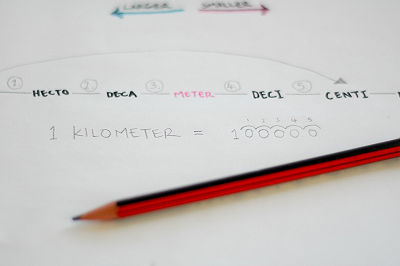 LARGER SMALLER
1 2 3 4 5
HECTO DECA METER DECI CENTI
1 2 3 4 5
1 KILOMETER = 100000